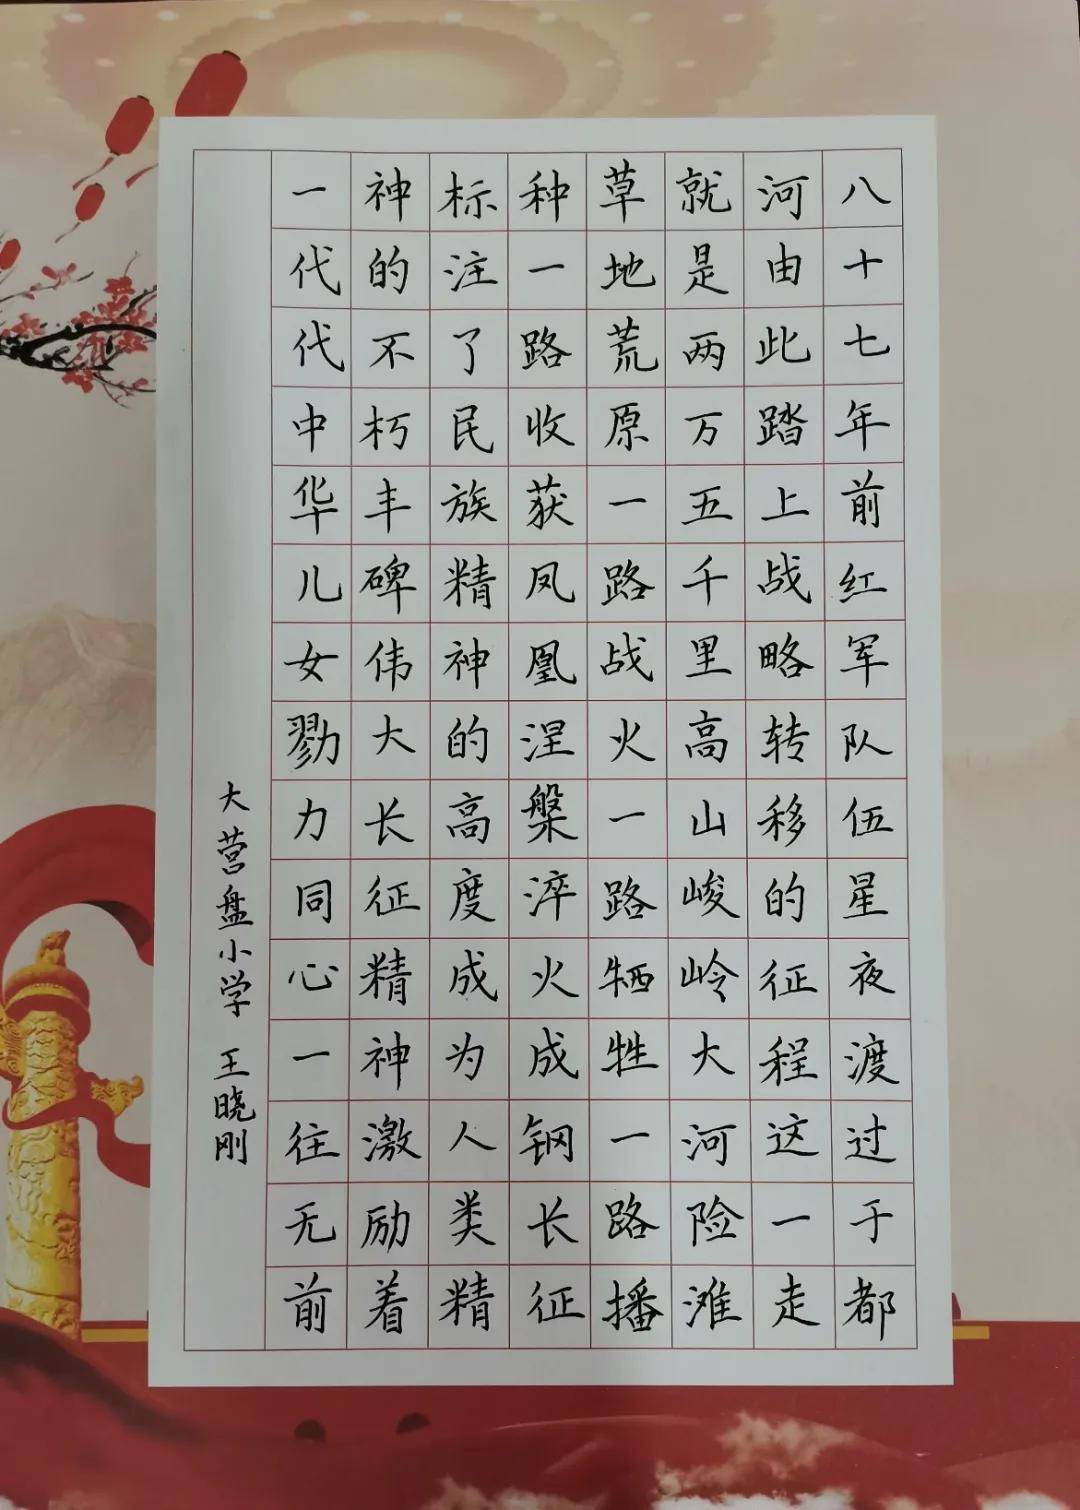 八十七年前红军队伍星夜渡过于都
河由此踏上战略转移的征程这一走
就是两万五千里高山峻岭大河险滩
草地荒原一路战火一路牺牲一路播
种一路收获凤凰涅槃淬火成钢长征
标注了民族精神的高度成为人类精
神的不朽丰碑伟大长征精神激励着
一代代中华儿女勠力同心一往无前
大营盘小学 王晓刚